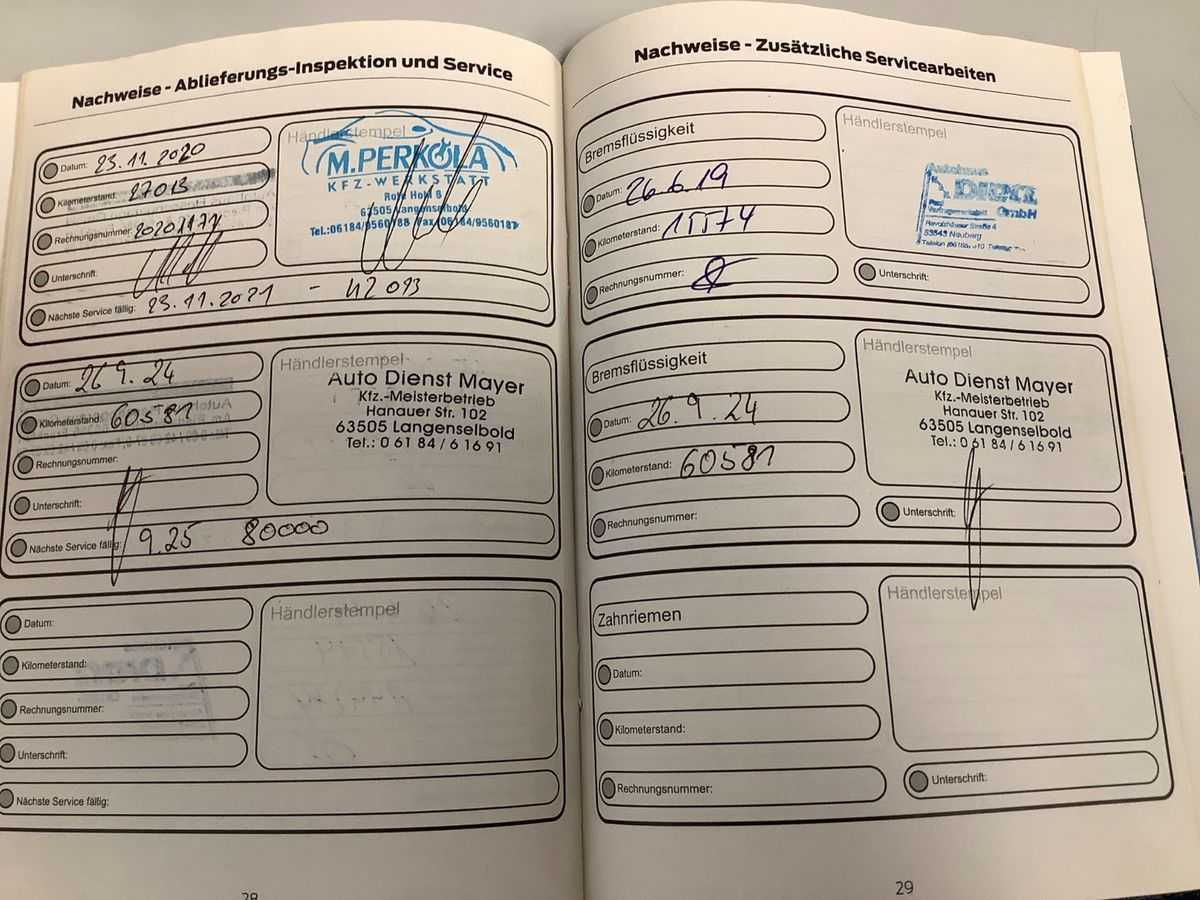 Nachweise - Ablieferungs-Inspektion und Service
Datum: 23.11.2020
Kilometerstand: 27013
Rechnungsnummer:
Unterschrift:
Nächste Service fällig: 23.11.2021 - 42 093
Händlerstempel
M.PERKOLA
KFZ-WERKSTATT
63505 Langenselbold
Tel.:06184/9560188 Fax:06184/9560187
Datum: 26 9. 24
Kilometerstand: 60581
Rechnungsnummer:
Unterschrift:
Nächste Service fällig: 9.25 80000
Händlerstempel
Auto Dienst Mayer
Kfz.-Meisterbetrieb
Hanauer Str. 102
63505 Langenselbold
Tel.: 0 61 84 / 6 16 91
Datum:
Kilometerstand:
Rechnungsnummer:
Unterschrift:
Nächste Service fällig:
Händlerstempel
28
Nachweise - Zusätzliche Servicearbeiten
Bremsflüssigkeit
Datum: 26.6.19
Kilometerstand: 15574
Rechnungsnummer:
Händlerstempel
Autohaus
GmbH
63543 Neuberg
Unterschrift:
Bremsflüssigkeit
Datum: 26.9.24
Kilometerstand: 60581
Rechnungsnummer:
Händlerstempel
Auto Dienst Mayer
Kfz.-Meisterbetrieb
Hanauer Str. 102
63505 Langenselbold
Tel.: 0 61 84 / 6 16 91
Unterschrift:
Zahnriemen
Datum:
Kilometerstand:
Rechnungsnummer:
Händlerstempel
Unterschrift:
29